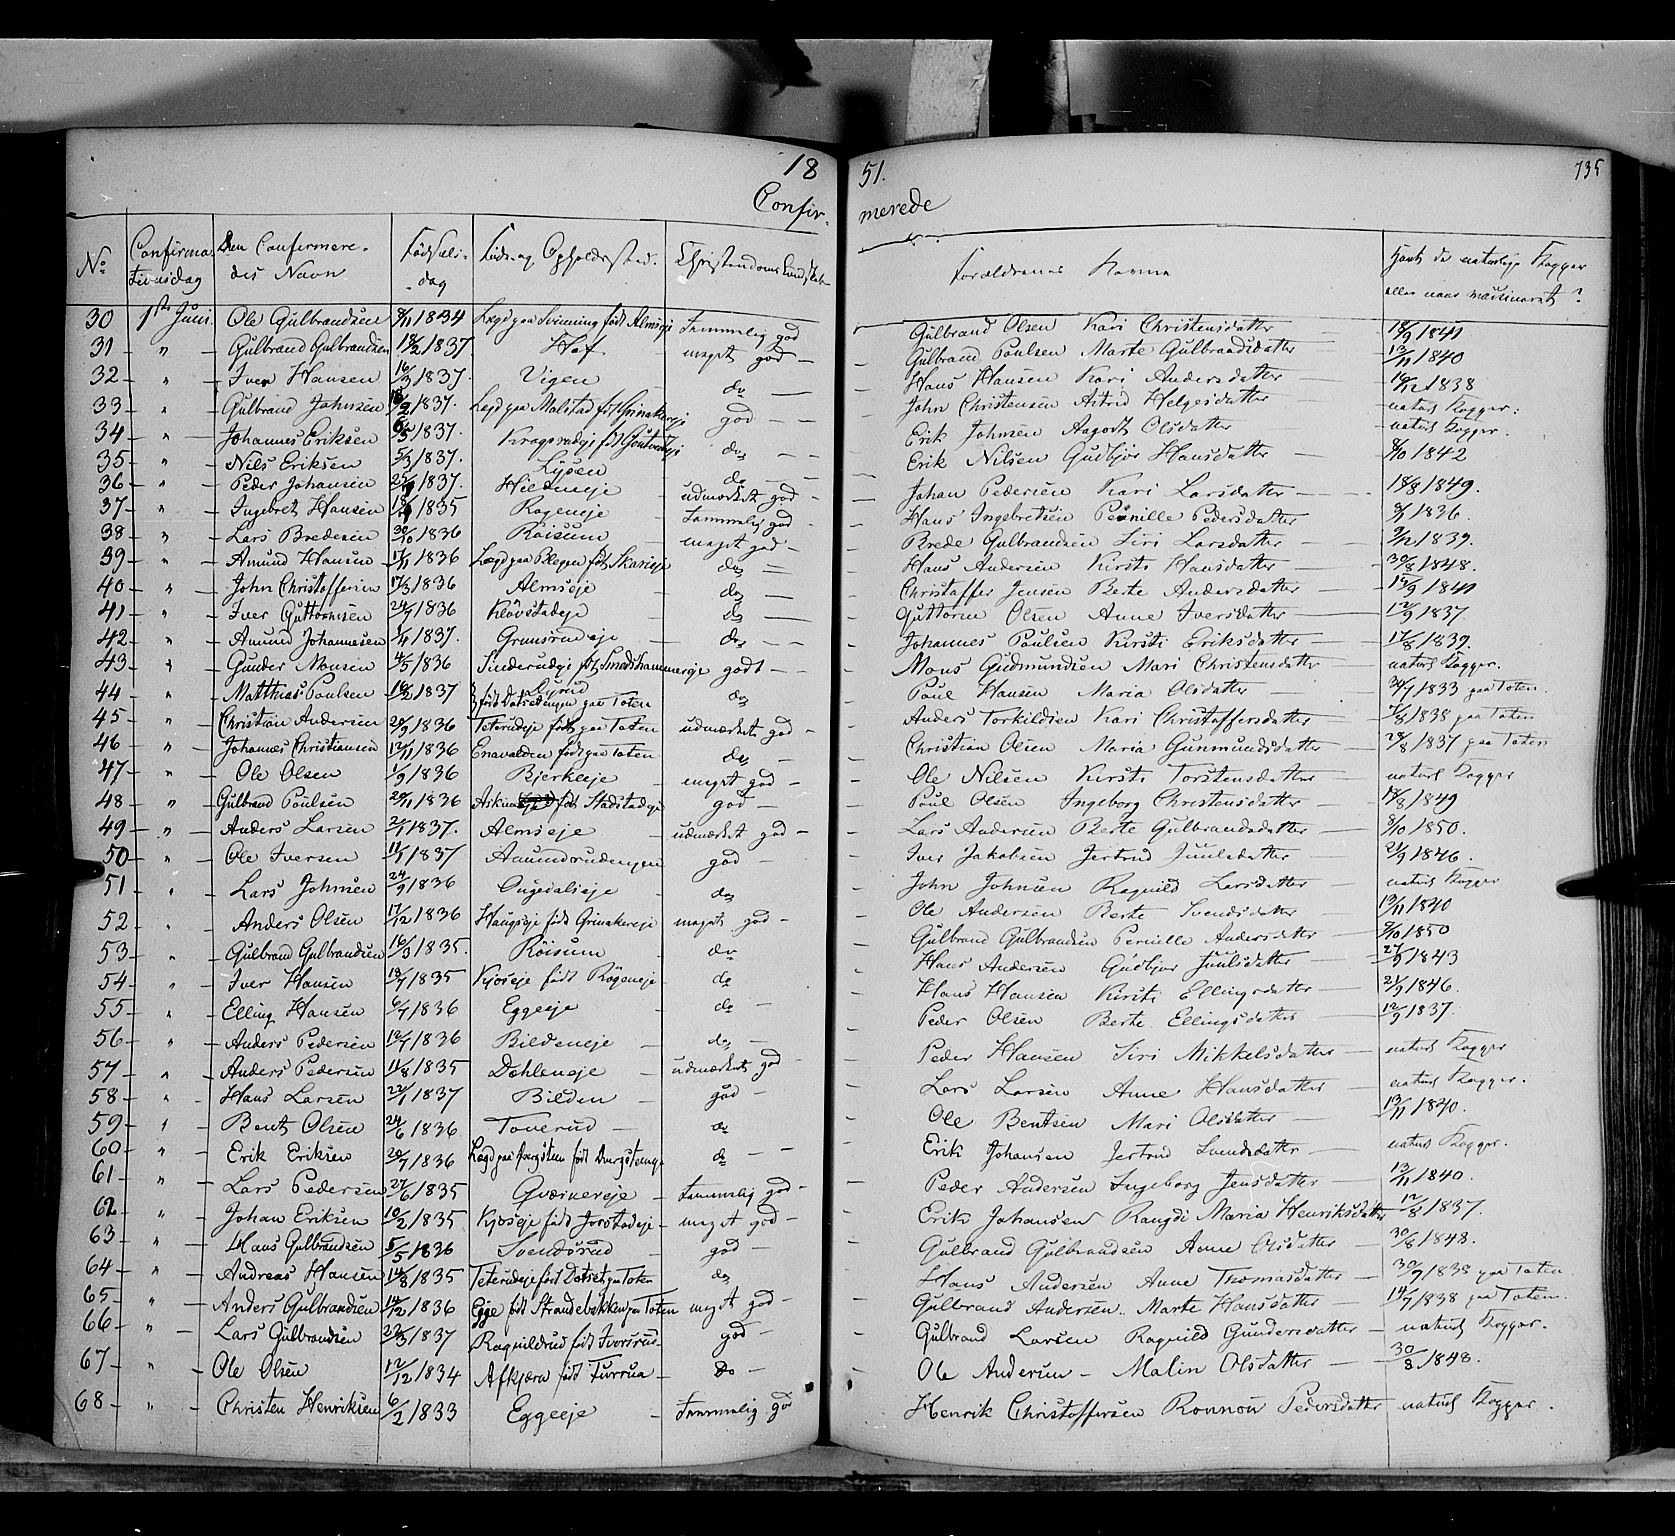 18 51. 735
Confir- merede
No Confirmationsdag Den Confirmeredes Navn Fødselsdag Føde og Opholdssted. Christendoms Kundskab Forældrenes Navne Havt de naturlige Kopper eller naar vaccineret?
30 1ste Juni. Ole Gulbrandsen 8/11 1834 Lægd paa Svinning født Almseje Temmelig god Gulbrand Olsen Kari Christensdatter 18/9 1841
31 " Gulbrand Gulbrandsen 18/2 1837 Hof meget god Gulbrand Poulsen Marte Gulbrandsdatter 13/11 1840
32 " Iver Hansen 16/3 1837. Vigen do Hans Hansen Kari Andersdatter 16/12 1838
33 " Gulbrand Johnsen 18/2 1837. Lægd paa Molstad født Grinakereje god John Christensen Astrid Helgesdatter naturl Kopper.
34 " Johannes Eriksen 6/5 1837. do Erik Johnsen Aagodt Olsdatter naturl Kopper.
35 " Nils Eriksen 5/3 1837. Lysen do Erik Nilsen Gudbjør Hansdatter 8/10 1842
36 " Peder Johansen 1837. udmærket god Johan Pedersen Kari Larsdatter 18/8 1849.
37 " Ingebret Hansen 1835 Rogeneje Temmelig god Hans Ingebretsen Pernille Pedersdatter 1836.
38 " Lars Bredesen 30/10 1836 Røisum meget god Brede Gulbrandsen Siri Larsdatter 9/12 1839.
39 " Amund Hansen 17/11 1836 Lægd paa Kleppen født Skarieje do Hans Andersen Kirsti Hansdatter 30/8 1848.
40 " John Christoffersen 17/3 1836 Almseje do Christoffer Jensen Berte Andersdatter 1841
41 " Iver Guttormsen 24/7 1836 Kløvstadeje do Guttorm Olsen Anne Iversdatter 12/9 1837.
42 " Amund Johannesen 1837. Grinsrudeje do Johannes Poulsen Kirsti Eriksdatter 17/8 1839.
43 " Gunder Monsen 14/5 1836 godt Mons Gudmundsen Mari Christensdatter naturl Kopper.
44 " Matthias Poulsen 1837 Lysrud født Dotsetengen paa Toten do Poul Hansen Maria Olsdatter 24/7 1833 paa Toten.
45 " Christian Andersen 20/9 1836 Teterudeje født paa Toten udmærket god Anders Torkildsen Kari Christoffersdatter 1838 paa Toten
46 " Johannes Christiansen 12/11 1836 Enavolden født paa Toten do Christian Olsen Maria Gunmundsdatter 28/8 1837 paa Toten
47 " Ole Olsen 1/9 1836 Bjerkeeje meget god Ole Nilsen Kirsti Torstensdatter naturl Kopper
48 " Gulbrand Poulsen 20/11 1836 født Stadstadeje god Poul Olsen Ingeborg Christensdatter 1849
49 " Anders Larsen 2/1 1837. Almseje udmærket god Lars Andersen Berte Gulbrandsdatter 8/10 1850.
50 " Ole Iversen 11/1 1837 Aamodrudengen god Iver Jakobsen Jertrud Juulsdatter 21/9 1846.
51 " Lars Johnsen 24/9 1836 Ongedalseje do John Johnsen Ragnild Larsdatter naturl Kopper
52 " Anders Olsen 17/12 1836 Haugseje født Grinakereje meget god Ole Andersen Berte Svendsdatter 13/11 1840
53 " Gulbrand Gulbrandsen 16/3 1835. Røisum do Gulbrand Gulbrandsen Pernille Andersdatter 9/10 1850
54 " Iver Hansen 18/7 1835 Kjøseje født Rogeneje do Hans Andersen Gudbjør Juulsdatter 1843
55 " Elling Hansen 6/7 1836 Eggeeje do Hans Hansen Kirsti Ellingsdatter 21/9 1846.
56 " Anders Pedersen 12/7 1836 Bildeneje do Peder Olsen Berte Ellingsdatter 12/9 1837.
57 " Anders Pedersen 11/8 1835 Dæhleneje udmærket god Peder Hansen Siri Mikkelsdatter naturl Kopper
58 " Hans Larsen 22/1 1837 Bilden god Lars Larsen Anne Hansdatter naturl Kopper.
59 " Bent Olsen 24/6 1836 Toverud do Ole Bentsen Mari Olsdatter 13/11 1840.
60 " Erik Eriksen 20/7 1836 Lægd paa født do Erik Johansen Jertrud Svendsdatter naturl Kopper.
61 " Lars Pedersen 27/6 1835 Gværnereje Temmelig god Peder Andersen Ingeborg Jensdatter 13/11 1840.
62 " Johan Eriksen 10/2 1835 Kjøseje født meget god Erik Johansen Rangdi Maria Henriksdatter 17/8 1837.
63 " Hans Gulbrandsen 5/5 1836 Svendsrud god Gulbrand Gulbrandsen Anne Olsdatter 30/8 1848.
64 " Andreas Hansen 14/8 1835 Teterudeje født Dotset paa Toten do Hans Andersen Anne Thomasdatter 30/9 1838 paa Toten.
65 " Anders Gulbrandsen 14/12 1836 Egge født Strandebakken paa Toten meget god Gulbrand Andersen Marte Hansdatter 14/7 1838 paa Toten.
66 " Lars Gulbrandsen 1837 Ragnildrud født Iversrud god Gulbrand Larsen Ragnild Gundersdatter naturl Kopper.
67 " Ole Olsen 12/12 1834 Afkjærn født Furrua Do Ole Andersen Malin Olsdatter 30/8 1848.
68 " Christen Henriksen 6/2 1833 Eggeeje Temmelig god Henrik Christoffersen Ronnou Pedersdatter naturl Kopper.